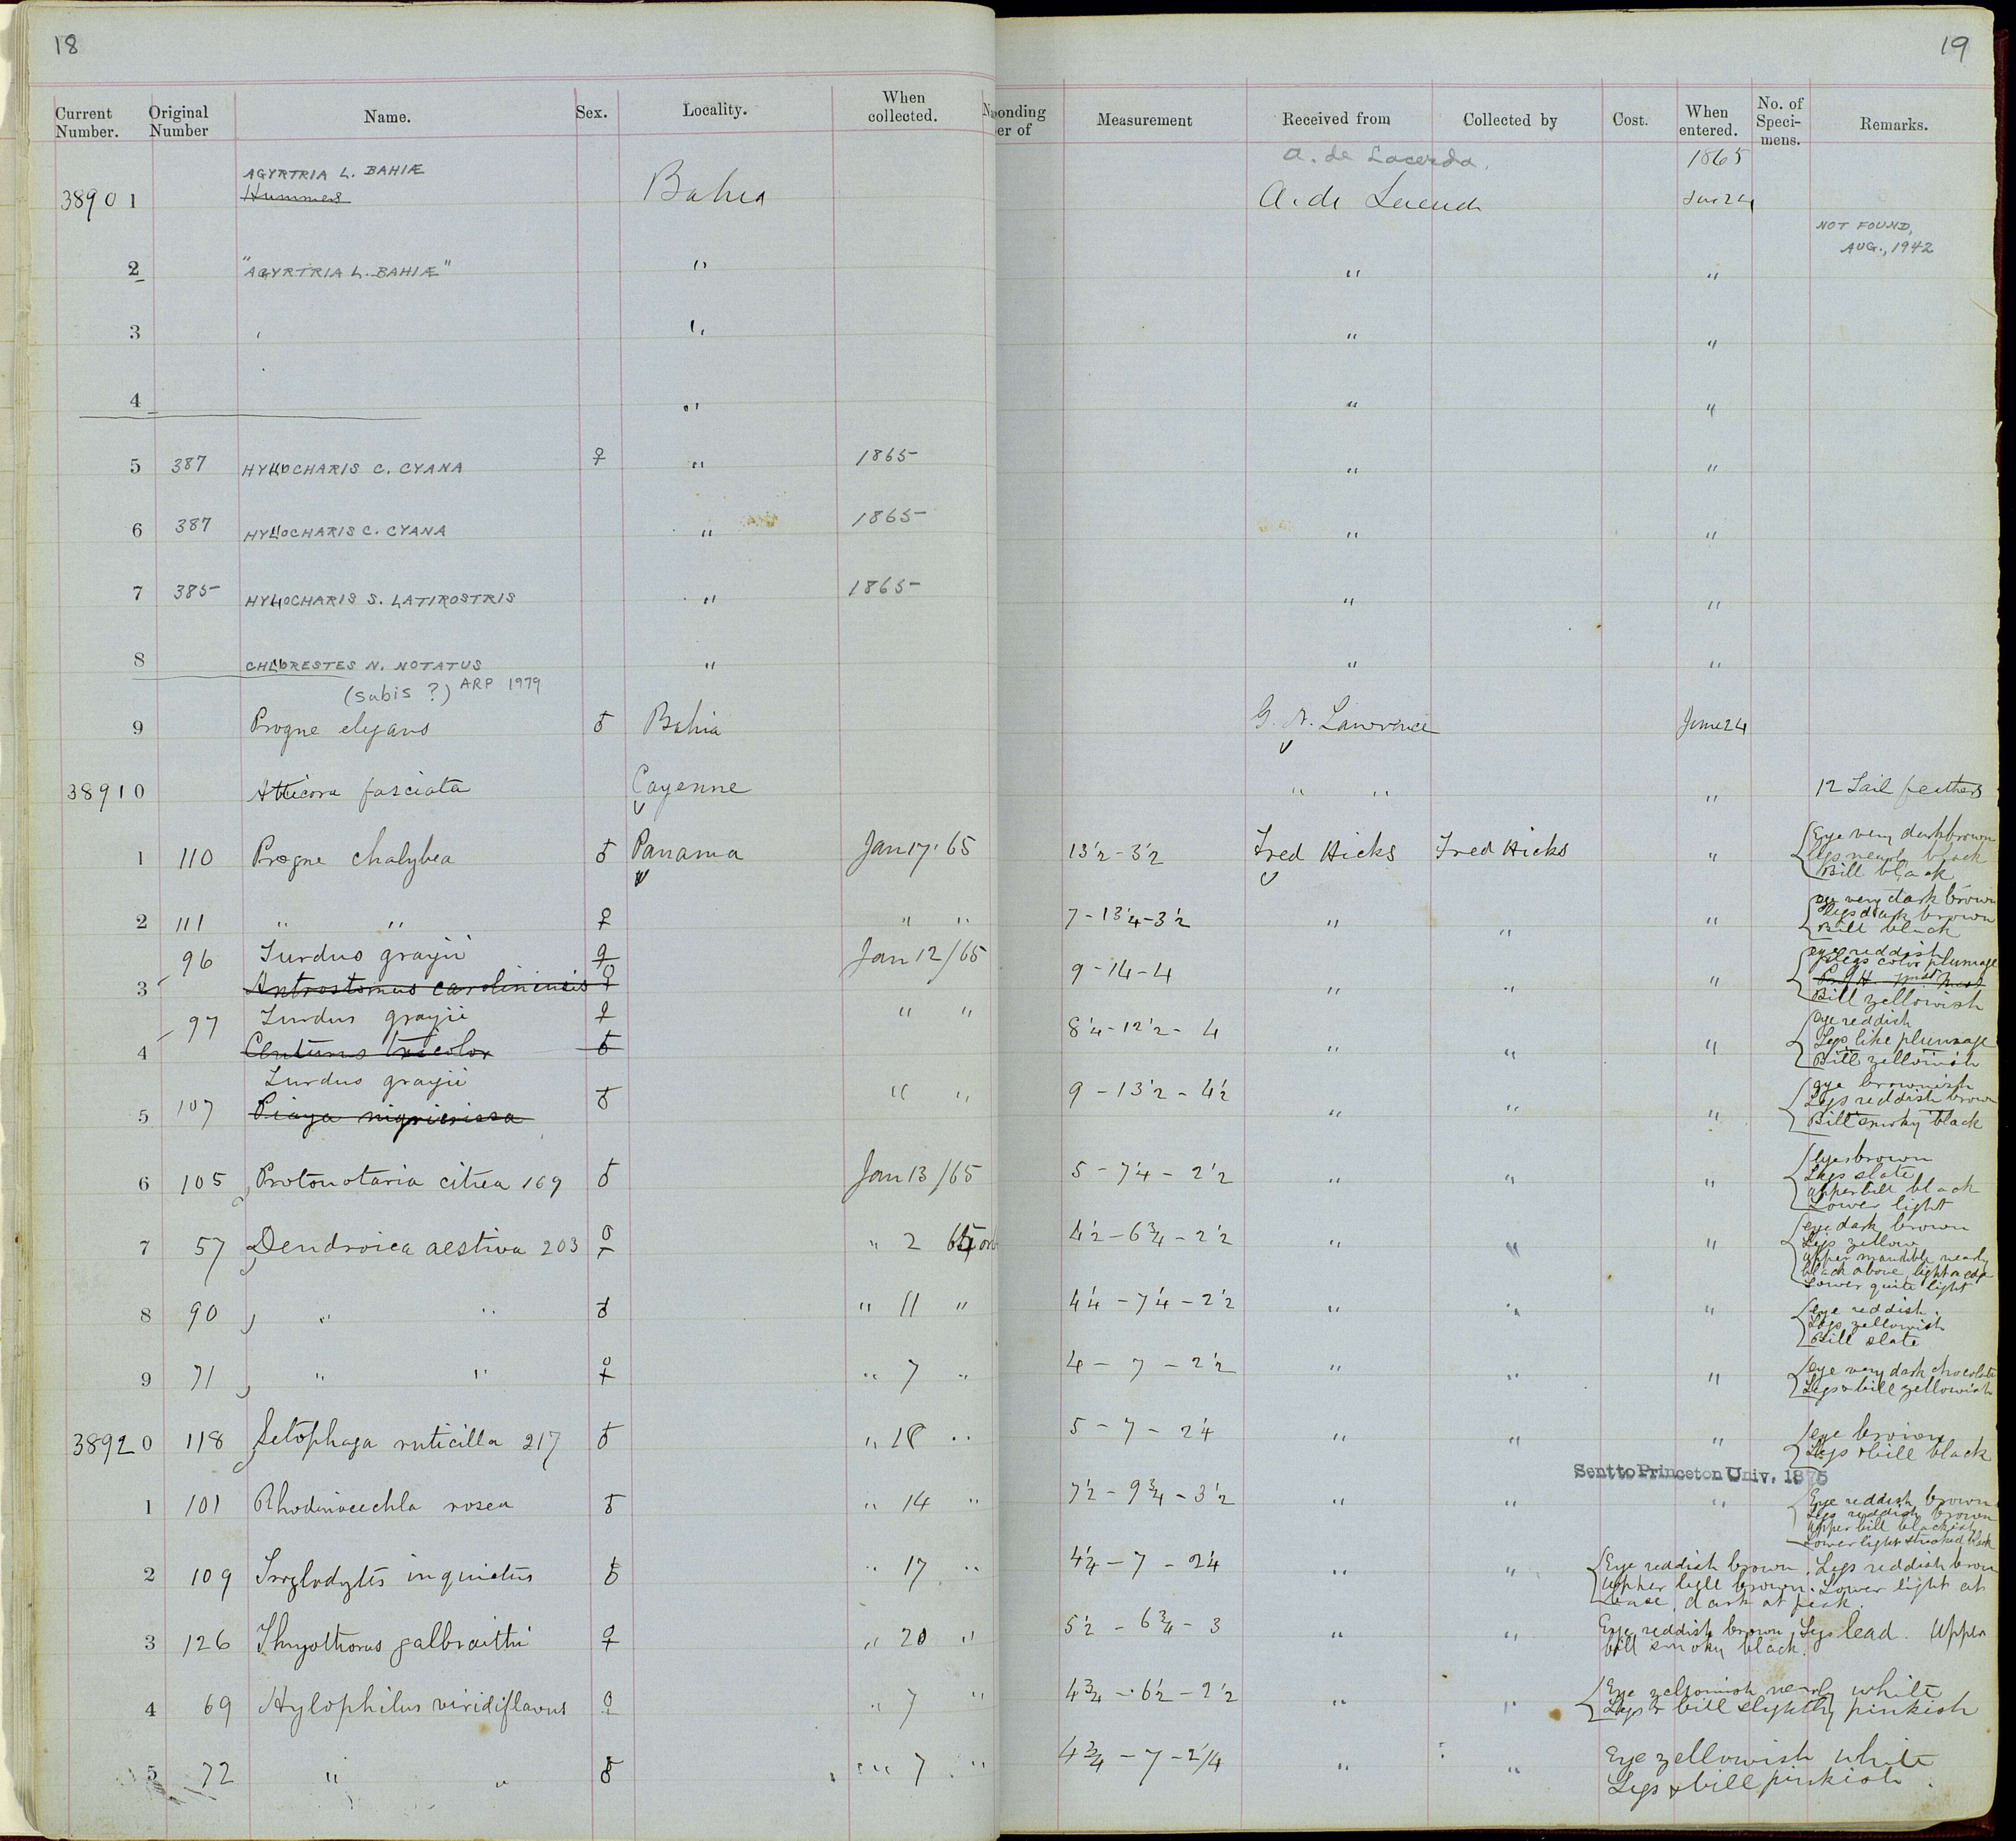 18
19
Current Number. Original Number Name. Sex. Locality. When collected. onding er of Measurement Received from Collected by Cost. When entered. No. of Specimens. Remarks.
A. de Lacerda. 1865
AGYRTRIA L. BAHIÆ
38901 Hummers Bahia A. de Lacerda Jun 24
NOT FOUND, AUG., 1942
2 "AGYRTRIA L. BAHIÆ" " " "
3 " " "
4 " " "
5 387 HYLOCHARIS C. CYANA ♀ " 1865 " "
6 387 HYLOCHARIS C. CYANA " 1865 " "
7 385 HYLOCHARIS S. LATIROSTRIS " 1865 " "
8 CHLORESTES N. NOTATUS " " "
(subis ?) ARP 1979
9 Progne elegans ♂ Bahia G. N. Lawrence June 24
38910 Atticora fasciata Cayenne " " " 12 Tail feathers
1 110 Progne chalybea ♂ Panama Jan 17 '65 13½ - 3½ Fred Hicks Fred Hicks " Eye very dark brown
Legs nearly black
Bill black
2 111 " " ♀ " " 7 - 13¼ - 3½ " " " Eye very dark brown
Legs dark brown
Bill black
96 Turdus grayii ♀ Jan 12/65
3 Antrostomus carolinensis ♀ 9 - 14 - 4 " " " Eye reddish
Legs color plumage
Bill yellowish
97 Turdus grayii ♀ " "
4 Centurus tricolor ♂ 8¼ - 12½ - 4 " " " Eye reddish
Legs like plumage
Bill yellowish
Turdus grayii
5 107 Piaya nigricrissa ♂ " " 9 - 13½ - 4½ " " " Eye brownish
Legs reddish brown
Bill smoky black
6 105 Protonotaria citrea 169 ♂ Jan 13/65 5 - 7¼ - 2½ " " " Eye brown
Legs slate
Upper bill black
Lower light
7 57 Dendroica aestiva 203 ♀ " 2 65 4½ - 6¾ - 2½ " " " Eye dark brown
Legs yellow
Upper mandible nearly
black above light on edge
Lower quite light
8 90 " " ♂ " 11 " 4¼ - 7¼ - 2½ " " " Eye reddish.
Legs yellowish
Bill slate
9 71 " " ♀ " 7 " 4 - 7 - 2½ " " " Eye very dark chocolate
Legs & bill yellowish
38920 118 Setophaga ruticilla 217 ♂ " 18 " 5 - 7 - 2¼ " " " Eye brown
Legs & bill black
Sent to Princeton Univ. 1875
1 101 Rhodinocichla rosea ♂ " 14 " 7½ - 9¾ - 3½ " " " Eye reddish brown
Legs reddish brown
Upper bill blackish
Lower light streaked black
2 109 Troglodytes inquietus ♂ " 17 " 4¼ - 7 - 2¼ " " Eye reddish brown. Legs reddish brown
Upper bill brown. Lower light at
base, dark at peak.
3 126 Thryothorus galbraithi ♀ " 20 " 5½ - 6¾ - 3 " " Eye reddish brown, Legs lead. Upper
bill smoky black.
4 69 Hylophilus viridiflavus ♀ " 7 " 4¾ - 6½ - 2½ " " Eye yellowish nearly white
Legs & bill slightly pinkish
5 72 " " ♂ " 7 " 4¾ - 7 - 2¼ " " Eye yellowish white
Legs & bill pinkish.